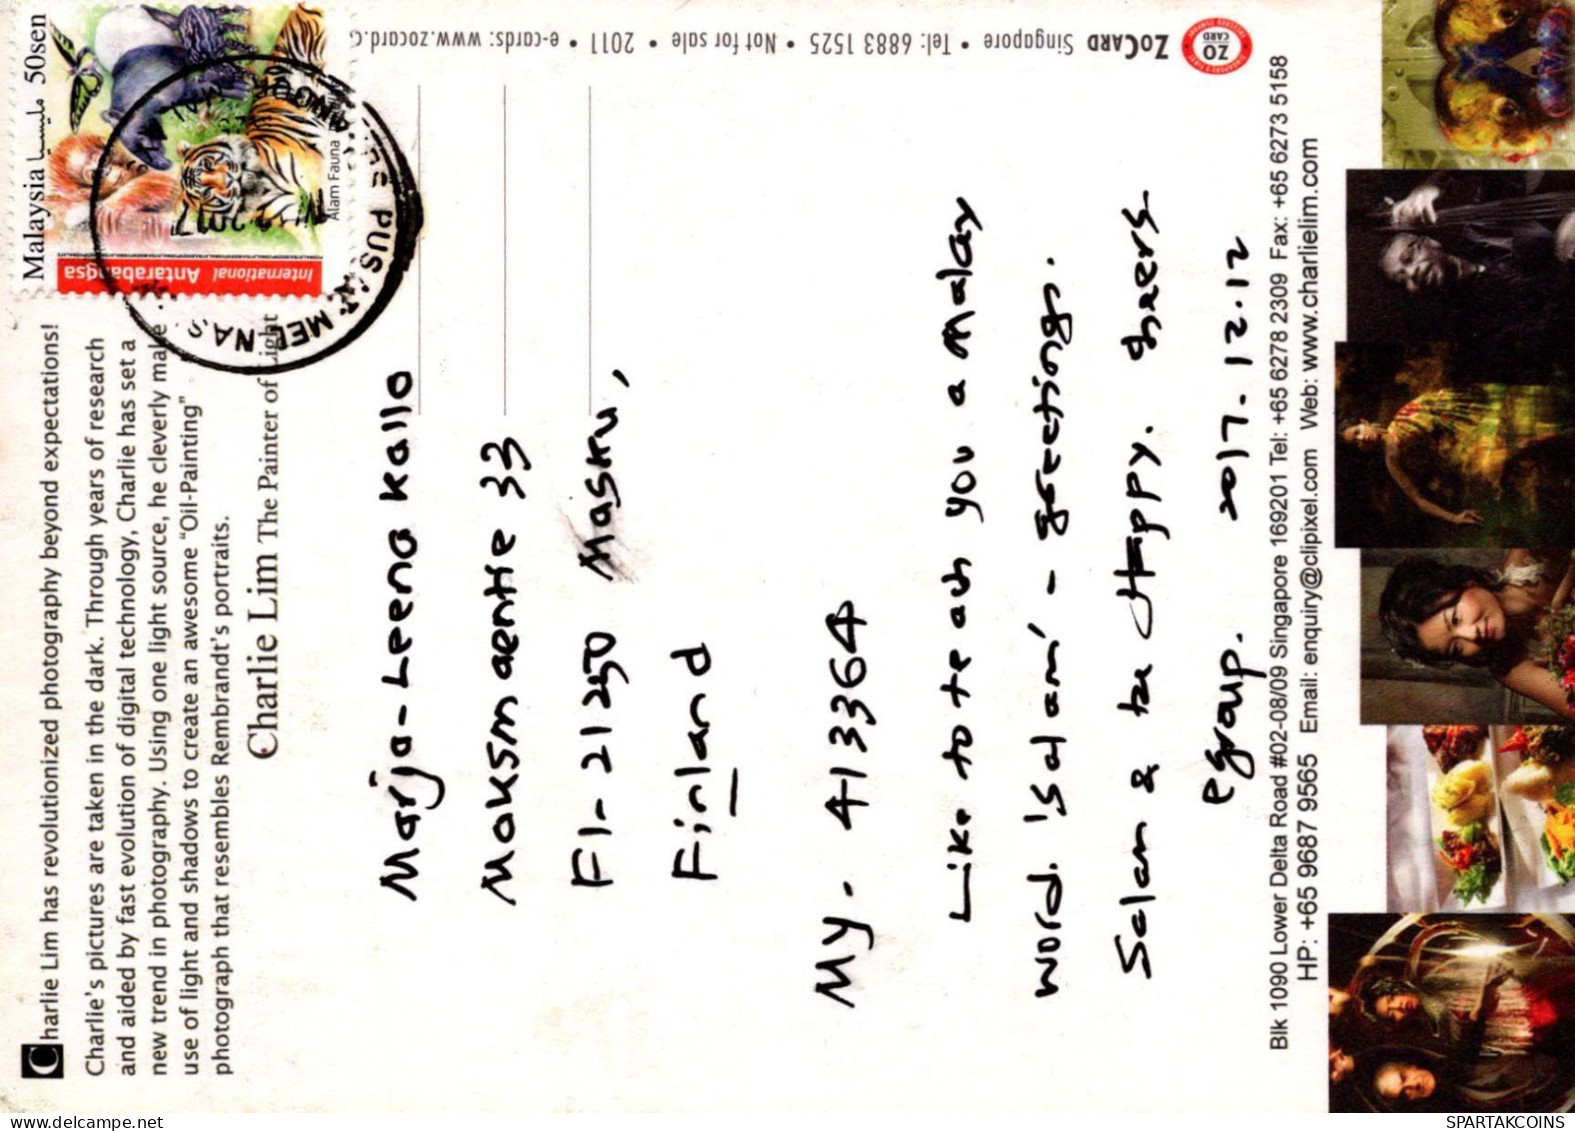 Charlie Lim has revolutionized photography beyond expectations!
Charlie's pictures are taken in the dark. Through years of research
and aided by fast evolution of digital technology, Charlie has set a
new trend in photography. Using one light source, he cleverly make
use of light and shadows to create an awesome "Oil-Painting"
photograph that resembles Rembrandt's portraits.
Charlie Lim The Painter of Light
Malaysia مليسيا 50sen
International Antarabangsa
Alam Fauna
PUSAT MEL NAS
2017
Marja-Leena Kallo
Maksmaentie 33
FI-21250 Masku,
Finland
MY-413364
Like to teach you a Malay
word. 'Salam' - greetings.
Salam & be Happy. Cheers
2017.12.12
Blk 1090 Lower Delta Road #02-08/09 Singapore 169201 Tel: +65 6278 2309 Fax: +65 6273 5158
HP: +65 9687 9565 Email: enquiry@clipixel.com Web: www.charlielim.com
ZO CARD
ZoCARD Singapore • Tel: 6883 1525 • Not for sale • 2011 • e-cards: www.zocard.c
www.delcampe.net
SPARTAKCOINS